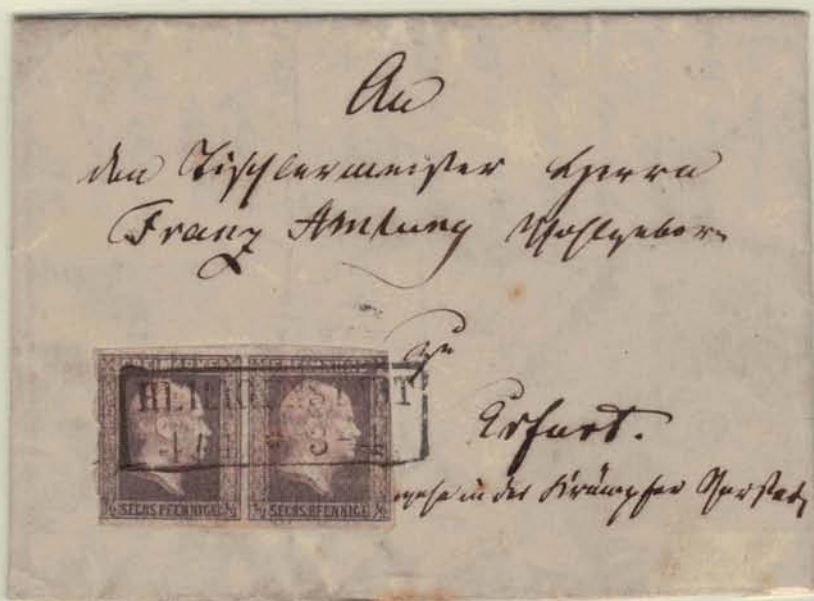 An
den Tischlermeister Herrn
Franz Amlung Wohlgeborn
zu
Erfurt.
in der Krämpfer Vorstadt
HEILIGENSTADT
½ SECHS PFENNIGE ½ ½ SECHS PFENNIGE ½